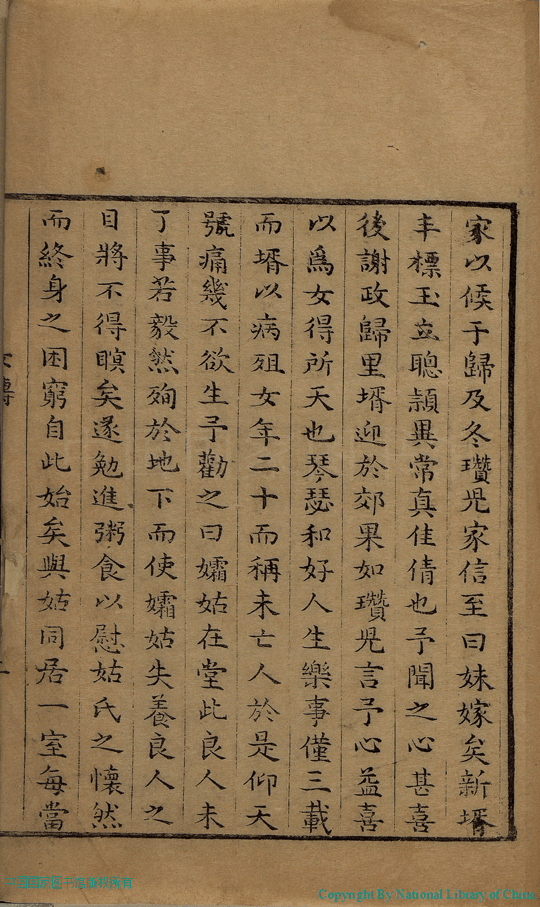 家以候于歸及冬瓚兒家信至曰妹嫁矣新壻
丰標玉立聰頴異常真佳倩也予聞之心甚喜
後謝政歸里壻迎於郊果如瓚兒言予心益喜
以為女得所天也琴瑟和好人生樂事僅三載
而壻以病殂女年二十而稱未亡人於是仰天
號痛幾不欲生予勸之曰孀姑在堂此良人未
了事若毅然殉於地下而使孀姑失養良人之
目將不得瞑矣遂勉進粥食以慰姑氏之懷然
而終身之困窮自此始矣與姑同居一室每當
Copyright By National Library of China